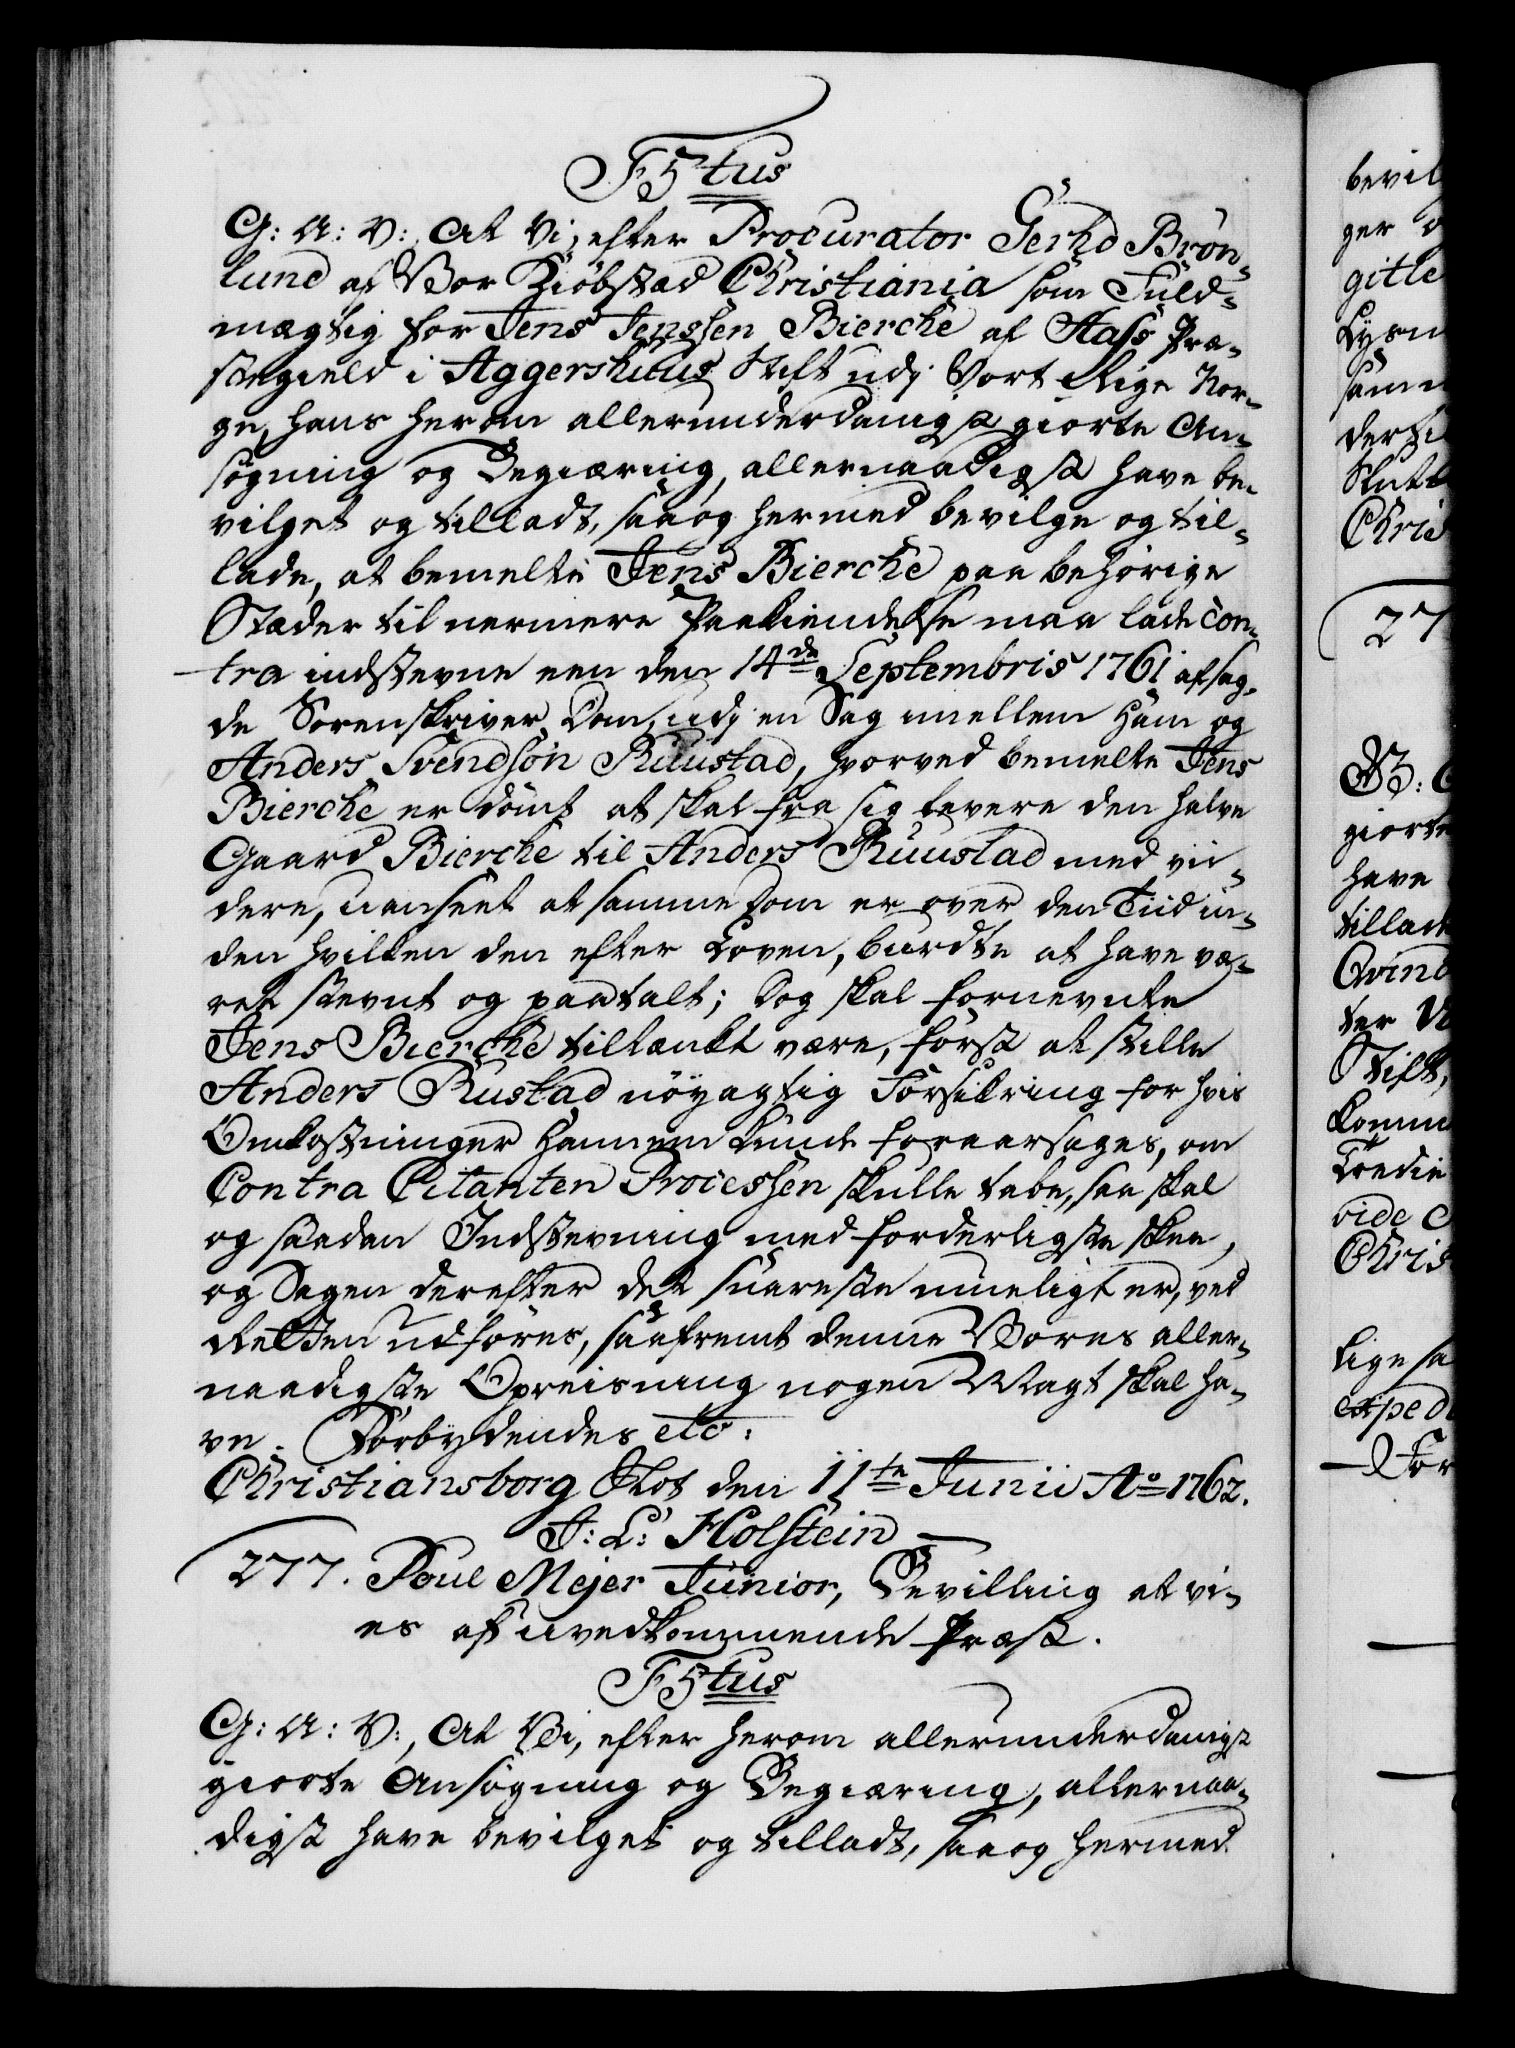 F5tus
G: A: V:, At Vi, efter Procurator Gerhd Brøn-
lund af Vor Kiøbstæd Christiania som Fuld-
mægtig for Jens Jenssen Bierche af Næss Præ-
stegield i Aggershuus Stift udj Vort Rige Nor-
ge, hans herom allerunderdanigst giorte An-
søgning og Begiæring, allernaadigst have be-
vilget og tilladt, saa og hermed bevilge og til-
lade, at bemelte Jens Bierche paa behørige
Stæder til nermere Paakiendelse maa lade con-
tra indstevne een den 14de Septembris 1761 afsag-
de Sorenskriver Dom, udj en Sag imellem Ham og
Anders Svendsøn Ruustad, hvorved bemelte Jens
Bierche er dømt at skal fra sig levere den halve
Gaard Bierche til Anders Ruustad med vii-
dere, uanseet at samme Dom er over den Tiid in-
den hvilken den efter Loven, burdte at have væ-
ret stevnt og paatalt; Dog skal fornevnte
Jens Bierche tiltænkt være, først at stille
Anders Rustad nøyagtig Forsikring for hvis
Omkostninger Hannem kunde foraarsages, om
Contra Citanten Processen skulle tabe, saa skal
og saadan Indstevning med forderligste skee,
og Sagen derefter det snareste mueligt er, ved
Retten udføres, saafremt denne Vores aller-
naadigste Opreisning nogen Magt skal ha-
ve. Forbydendes etc.
Christiansborg Slot den 11te Junii Ao 1762.
J: L: Holstein
277. Poul Mejer Junior, Bevilling at vi-
es af uvedkommende Præst.
F5tus
G: A: V:, At Vi, efter herom allerunderdanigst
giorte Ansøgning og Begiæring, allernaa-
digst have bevilget og tilladt, saa og hermed
bevil
ger
gitte
Chris
27
giorte
have
tillad
Qvind
ter
Stift,
komme
vide
Chris
lige sa
exped
For